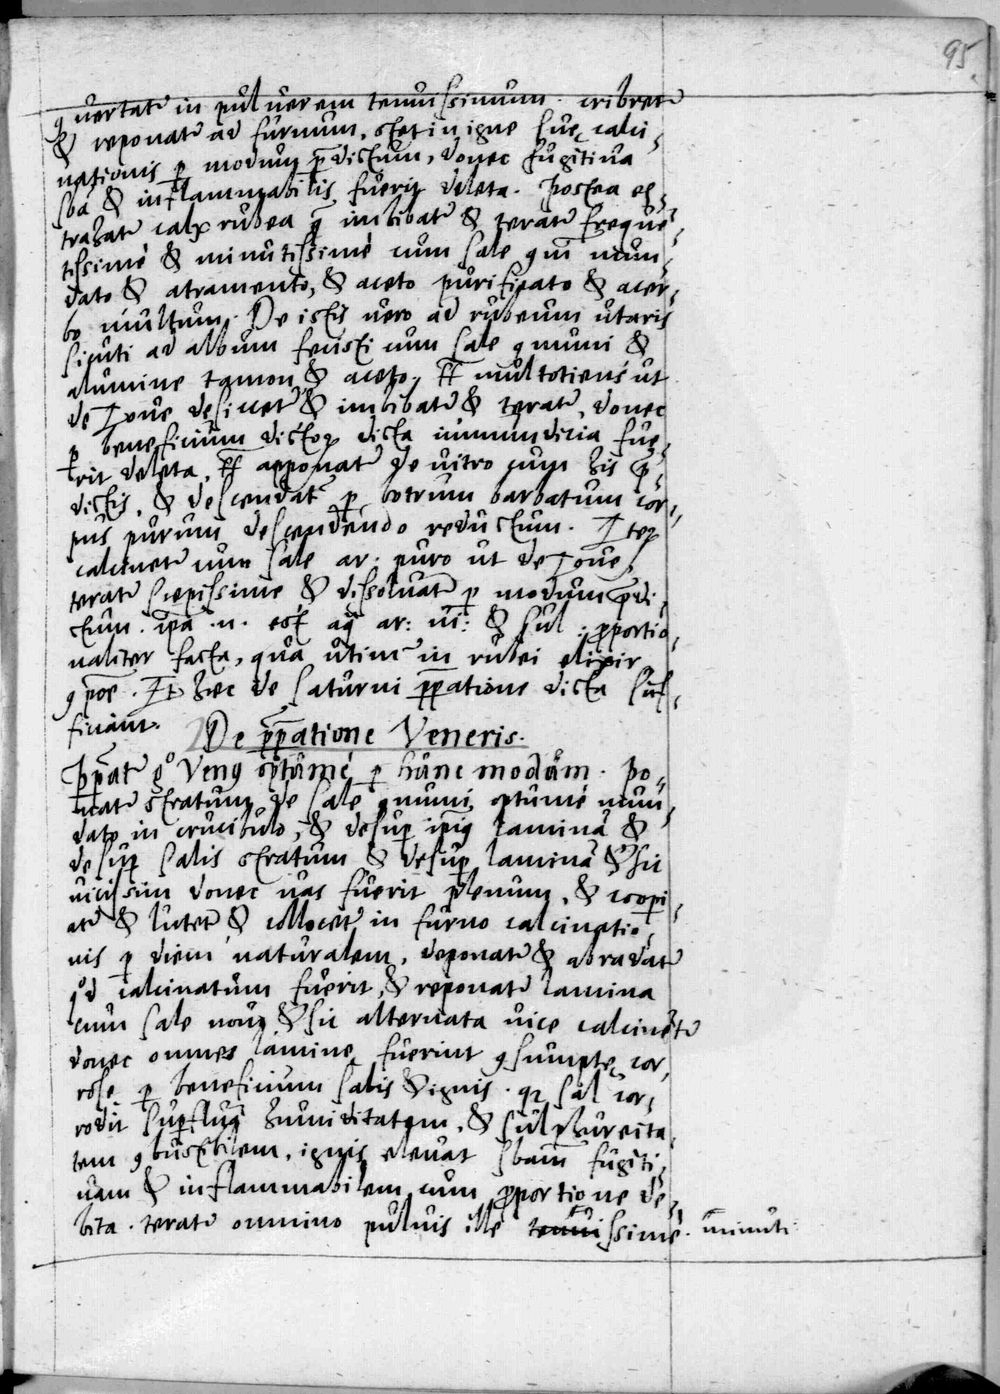 95
ꝯuertat᷑ in puluerem tenuissimum. cribret᷑
& reponat᷑ ad furnum, stet in igne suę calci⸗
nationis ꝑ modum p̄dictum, donec fugitiua
sba & inflammabilis fuerit deleta. Postea ex⸗
trahat᷑ calx rubea q̄ imbibat᷑ & terat᷑ freque⸗
tissimè & minutissimè cum sale ꝯmūi mun⸗
dato & atramento, & aceto purificato & acer⸗
bo multum. De istis uero ad rubeum utaris
sicuti ad album fecisti cum sale ꝯmuni &
alumine Iamenj & aceto, It multotiens ut
de Ioue desicet᷑ & imbibat᷑ & terat᷑, donec
ꝑ beneficium dictoꝝ dicta immundicia fue⸗
rit deleta, It apponat᷑ de uitro cum his p̄⸗
dictis, & descendat᷑ ꝑ botrum barbatum cor⸗
pus purum descendendo reductum. Iteꝝ
calcinet᷑ cum sale ar. puro ut de Ioue,
terat᷑ sæpissime & dissoluat᷑ ꝑ modum p̄di⸗
ctum. ipā .n. est aq̄ ar: ui: & sul: ꝓportio⸗
naliter facta, qua utim᷑ in rubei elixir
ꝯpoē. Et hæc de saturni p̄patione dicta suf⸗
ficiant.
De p̄patione Veneris.
P̄pat᷑ gº Venꝰ optimè ꝑ hunc modum. Po⸗
nat᷑ stratum de sale ꝯmuni optume mun⸗
dato in crucibulo, & desuꝑ ipiꝰ laminā &
desuꝑ salis stratum & desuꝑ laminā & sic
uicissim donec uas fuerit plenum, & coopi⸗
at᷑ & lutet᷑ & collocet᷑ in furno calcinatio⸗
nis ꝑ diem naturalem, deponat᷑ & abradat᷑
qº̄d calcinatum fuerit, & reponat᷑ lamina
cum sale nouo & sic alternata uice calcinet᷑
donec omnes laminę fuerint ꝯsumptę, cor⸗
rosę ꝑ beneficium salis & ignis. qꝛ sal cor⸗
rodit suꝑfluā humiditatem, & sulphureita⸗
tem ꝯbustibilem, ignis eleuat sbam̄ fugiti⸗
uam & inflammabilem cum ꝓportione de⸗
bita. terat᷑ omnino puluis ille tenuissimè. minuti: